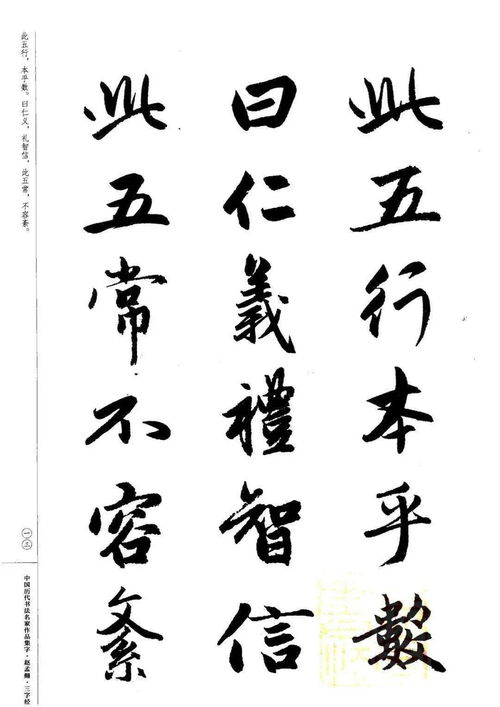 此五行本乎數
曰仁義禮智信
此五常不容紊
此五行，本乎数。曰仁义，礼智信。此五常，不容紊。
一三
中国历代书法名家作品集字·赵孟頫·三字经